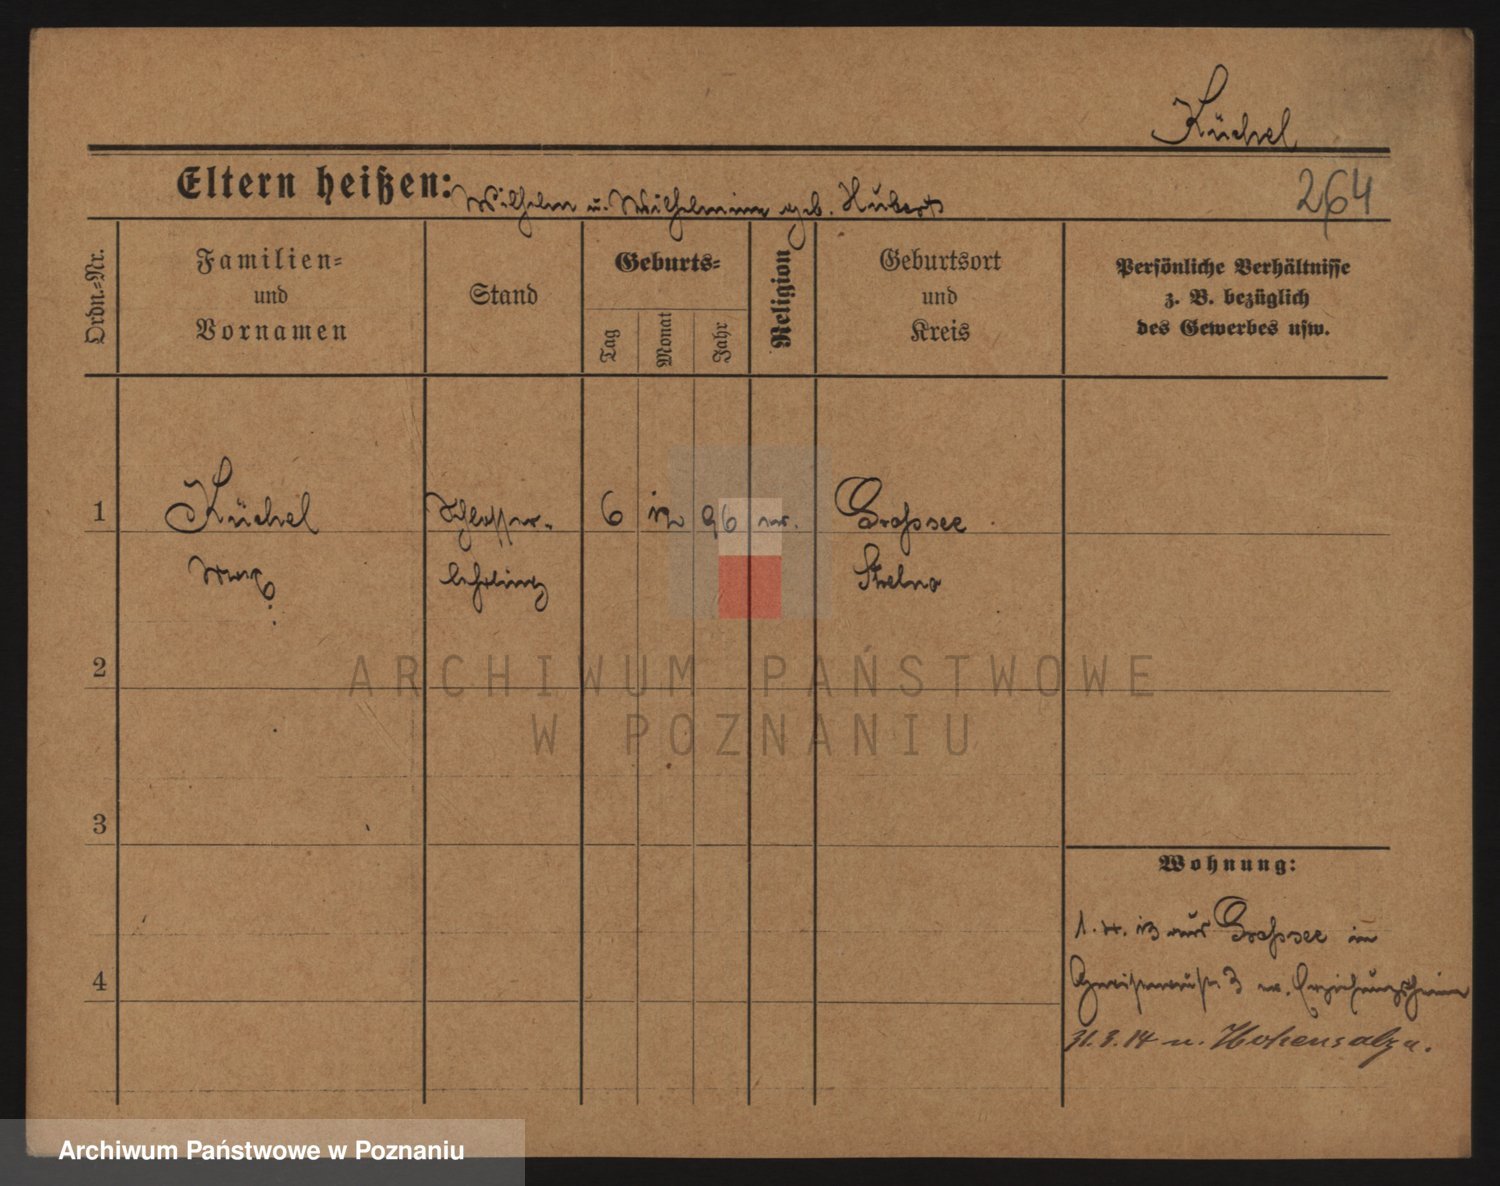 Küchel
Eltern heißen: Wilhelm u. Wilhelmine geb. Hubert
264
Ordn.-Nr.
Familien-
und
Vornamen
Stand
Geburts-
Tag
Monat
Jahr
Religion
Geburtsort
und
Kreis
Persönliche Verhältnisse
z. B. bezüglich
des Gewerbes usw.
1
Küchel
Max
Schlosser-
lehrling
6
12
96
ev.
Grossee
Strelno
2
3
4
Wohnung:
1. 4. 13 aus Grossee in
3 ev. Erziehungsheim
31.3.14 n. Hohensalza.
ARCHIWUM PAŃSTWOWE
W POZNANIU
Archiwum Państwowe w Poznaniu